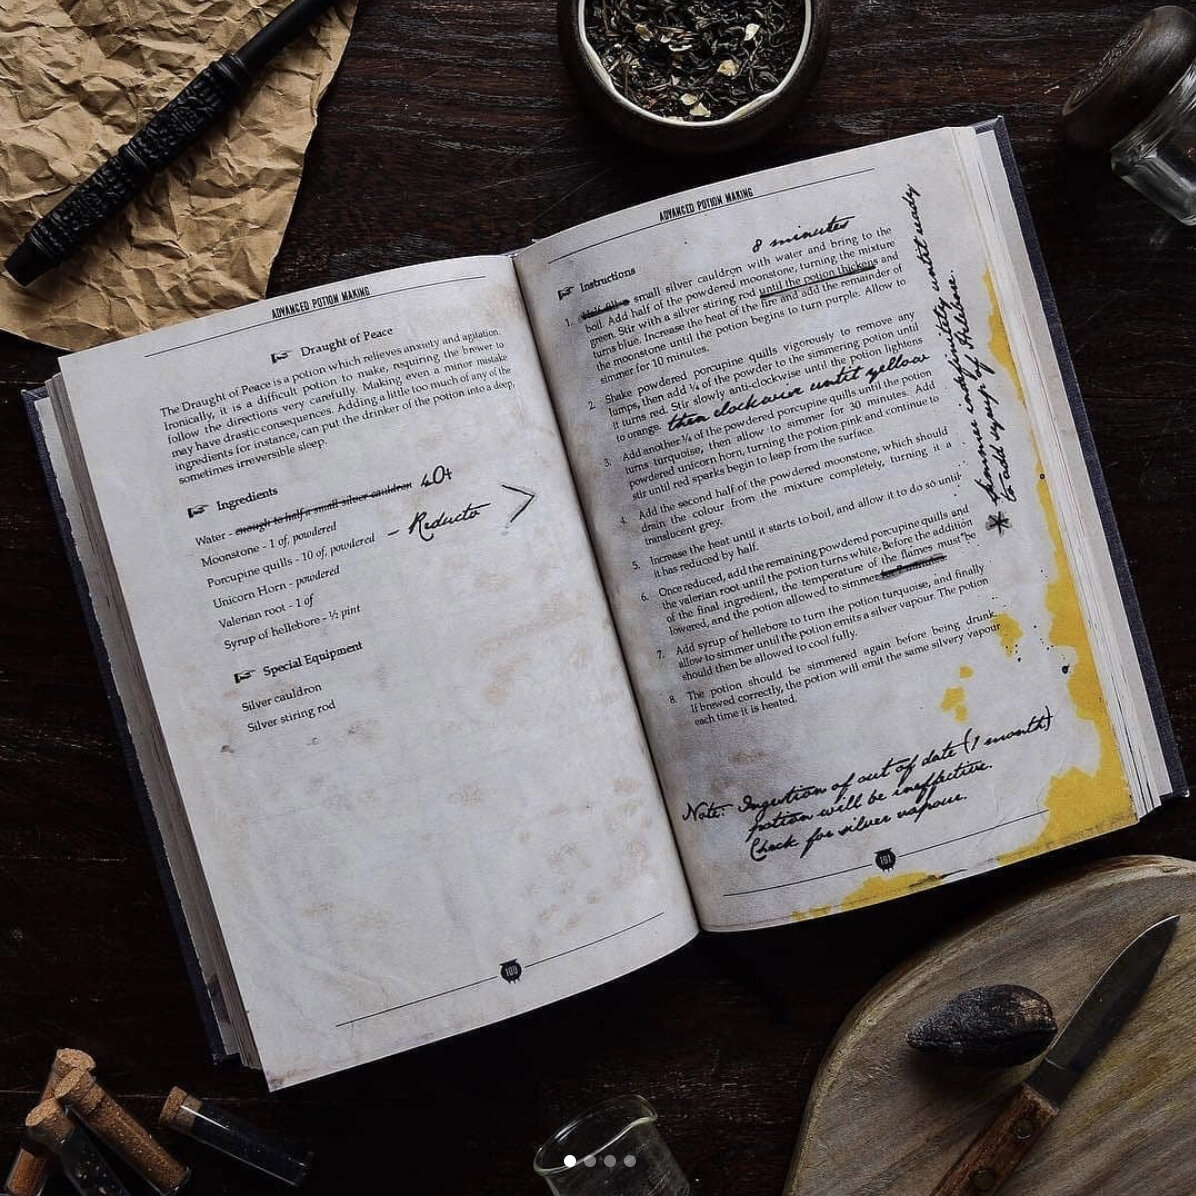 ADVANCED POTION MAKING
Draught of Peace
The Draught of Peace is a potion which relieves anxiety and agitation.
Ironically, it is a difficult potion to make, requiring the brewer to
follow the directions very carefully. Making even a minor mistake
may have drastic consequences. Adding a little too much of any of the
ingredients for instance, can put the drinker of the potion into a deep,
sometimes irreversible sleep.
Ingredients
Water - enough to half a small silver cauldron 40z
Moonstone - 1 of, powdered
Porcupine quills - 10 of, powdered - Reducto
Unicorn Horn - powdered
Valerian root - 1 of
Syrup of hellebore - ½ pint
Special Equipment
Silver cauldron
Silver stiring rod
100
ADVANCED POTION MAKING
8 minutes
Instructions
1. small silver cauldron with water and bring to the
boil. Add half of the powdered moonstone, turning the mixture
green. Stir with a silver stiring rod until the potion thickens and
turns blue. Increase the heat of the fire and add the remainder of
the moonstone until the potion begins to turn purple. Allow to
simmer for 10 minutes.
2. Shake powdered porcupine quills vigorously to remove any
lumps, then add ¼ of the powder to the simmering potion until
it turns red. Stir slowly anti-clockwise until the potion lightens
to orange. then clockwise until yellow
3. Add another ¼ of the powdered porcupine quills until the potion
turns turquoise, then allow to simmer for 30 minutes. Add
powdered unicorn horn, turning the potion pink and continue to
stir until red sparks begin to leap from the surface.
4. Add the second half of the powdered moonstone, which should
drain the colour from the mixture completely, turning it a
translucent grey.
5. Increase the heat until it starts to boil, and allow it to do so until
it has reduced by half.
6. Once reduced, add the remaining powdered porcupine quills and
the valerian root until the potion turns white. Before the addition
of the final ingredient, the temperature of the flames must be
lowered, and the potion allowed to simmer
7. Add syrup of hellebore to turn the potion turquoise, and finally
allow to simmer until the potion emits a silver vapour. The potion
should then be allowed to cool fully.
8. The potion should be simmered again before being drunk.
If brewed correctly, the potion will emit the same silvery vapour
each time it is heated.
* Simmer indefinitely until ready
to add syrup of Hellebore.
Note: Ingestion of out of date (1 month)
potion will be ineffective.
Check for silver vapour.
101